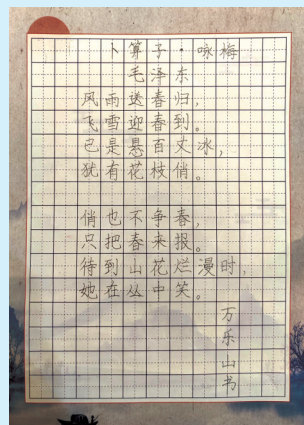 卜算子·咏梅
毛泽东
风雨送春归，
飞雪迎春到。
已是悬百丈冰，
犹有花枝俏。
俏也不争春，
只把春来报。
待到山花烂漫时，
她在丛中笑。
万乐山书